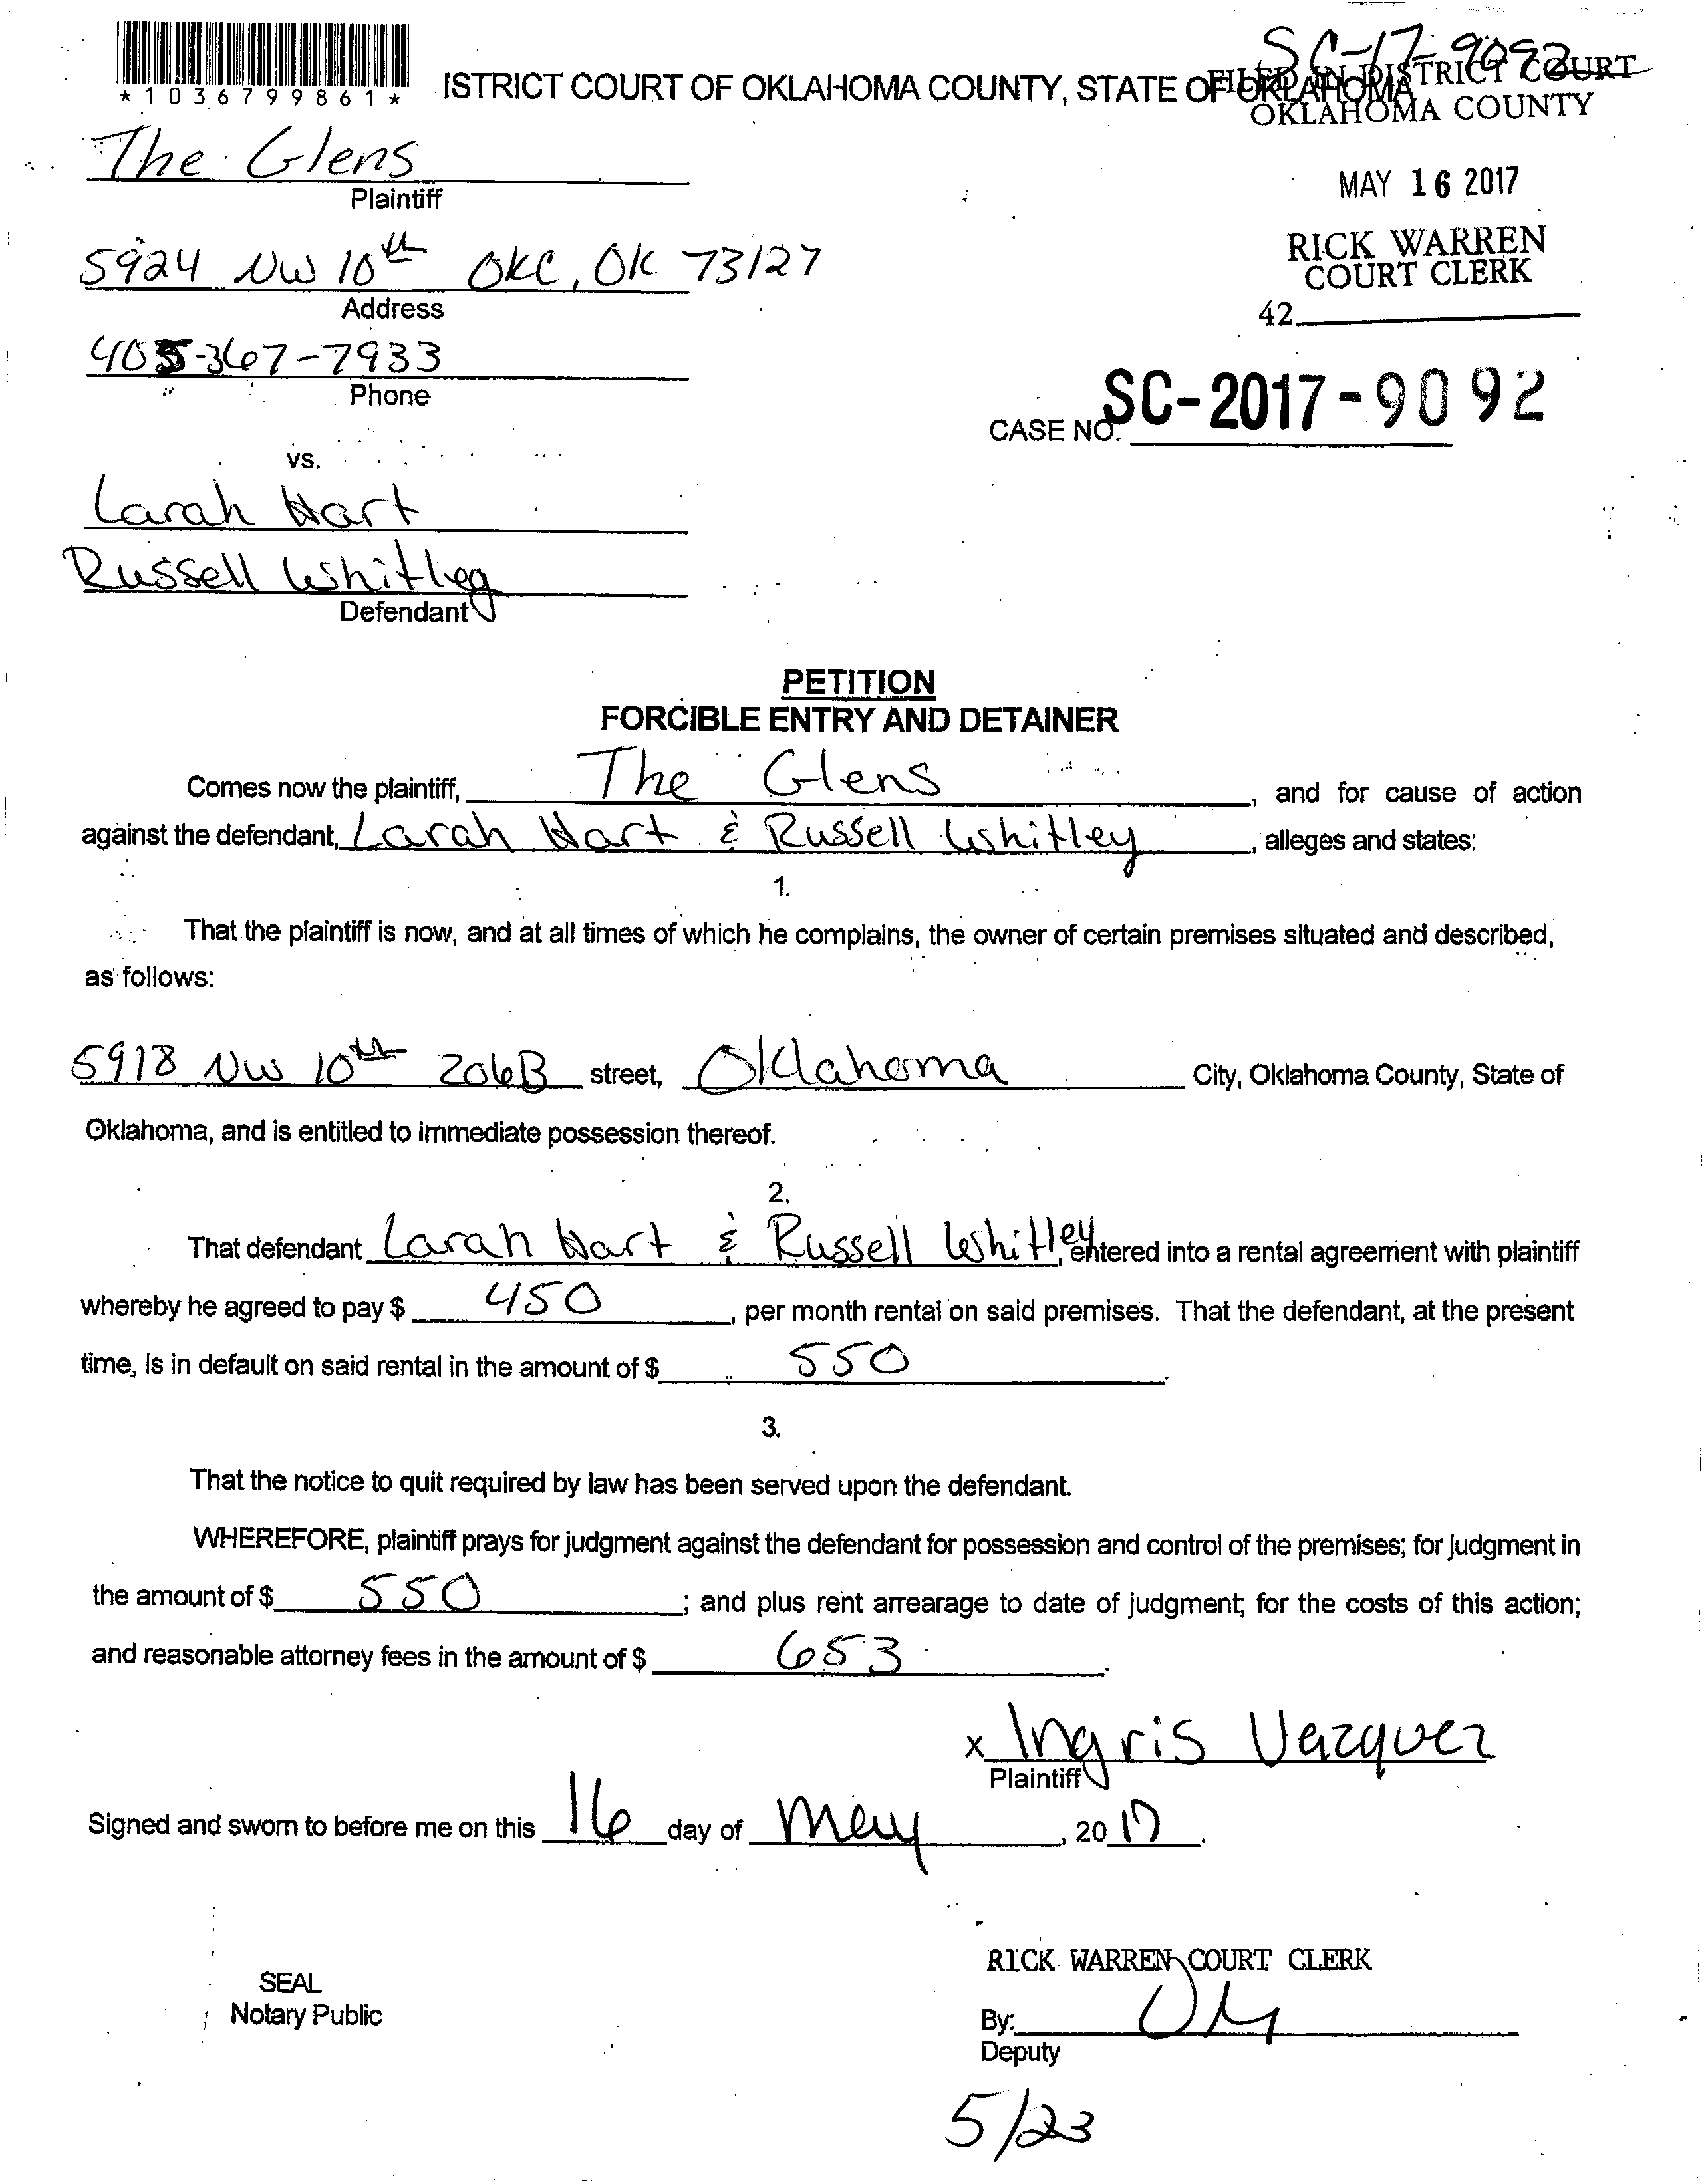 SC-17-9092
*1036799861*
ISTRICT COURT OF OKLAHOMA COUNTY, STATE OF OKLAHOMA
FILED IN DISTRICT COURT
OKLAHOMA COUNTY
The Glens
Plaintiff
MAY 16 2017
5924 NW 10th OKC, OK 73127
Address
RICK WARREN
COURT CLERK
42
405-367-7933
Phone
CASE NO. SC-2017-9092
vs.
Larah Hart
Russell Whitley
Defendant
PETITION
FORCIBLE ENTRY AND DETAINER
Comes now the plaintiff, The Glens, and for cause of action
against the defendant, Larah Hart & Russell Whitley, alleges and states:
1.
That the plaintiff is now, and at all times of which he complains, the owner of certain premises situated and described,
as follows:
5918 NW 10th 206B street, Oklahoma City, Oklahoma County, State of
Oklahoma, and is entitled to immediate possession thereof.
2.
That defendant Larah Hart & Russell Whitley, entered into a rental agreement with plaintiff
whereby he agreed to pay $ 450, per month rental on said premises. That the defendant, at the present
time, is in default on said rental in the amount of $ 550.
3.
That the notice to quit required by law has been served upon the defendant.
WHEREFORE, plaintiff prays for judgment against the defendant for possession and control of the premises; for judgment in
the amount of $ 550; and plus rent arrearage to date of judgment; for the costs of this action;
and reasonable attorney fees in the amount of $ 653.
x Ingris Vazquez
Plaintiff
Signed and sworn to before me on this 16 day of May, 2017.
RICK WARREN COURT CLERK
SEAL
Notary Public
By:
Deputy
5/23